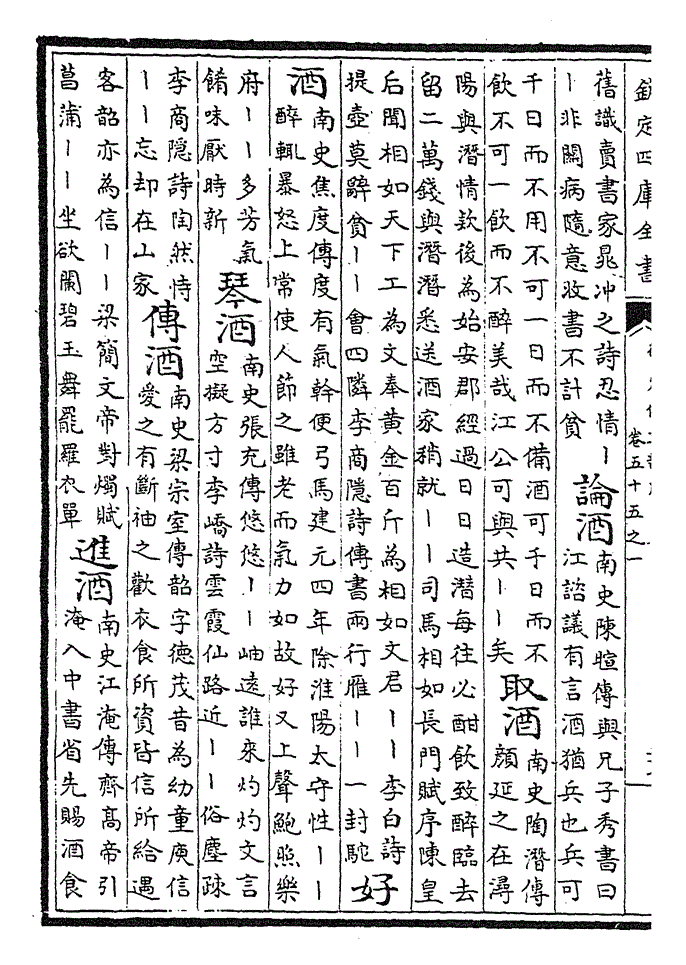 欽定四庫全書
卷五十五之一
舊識賣書家晁冲之詩忍情丨
丨非關病隨意收書不計貧
論酒
南史陳暄傳與兄子秀書曰
江諮議有言酒猶兵也兵可
千日而不用不可一日而不備酒可千日而不
飲不可一飲而不醉美哉江公可與共丨丨矣
取酒
南史陶潛傳
顔延之在潯
陽與潛情款後為始安郡經過日日造潛每往必酣飲致醉臨去
留二萬錢與潛潛悉送酒家稍就丨丨司馬相如長門賦序陳皇
后聞相如天下工為文奉黃金百斤為相如文君丨丨李白詩
提壺莫辭貧丨丨會四隣李商隱詩傳書兩行雁丨丨一封駝
好
酒
南史焦度傳度有氣幹便弓馬建元四年除淮陽太守性丨丨
醉輒暴怒上常使人節之雖老而氣力如故好又上聲鮑照樂
府丨丨多芳氣
餚味厭時新
琴酒
南史張充傳悠悠丨丨岫遠誰來灼灼文言
空擬方寸李嶠詩雲霞仙路近丨丨俗塵疎
李商隐詩陶然恃
丨丨忘却在山家
傳酒
南史梁宗室傳韶字德茂昔為幼童庾信
愛之有斷袖之歡衣食所資皆信所給遇
客韶亦為信丨丨梁簡文帝對燭賦
菖蒲丨丨坐欲闌碧玉舞罷羅衣單
進酒
南史江淹傳齊髙帝引
淹入中書省先賜酒食